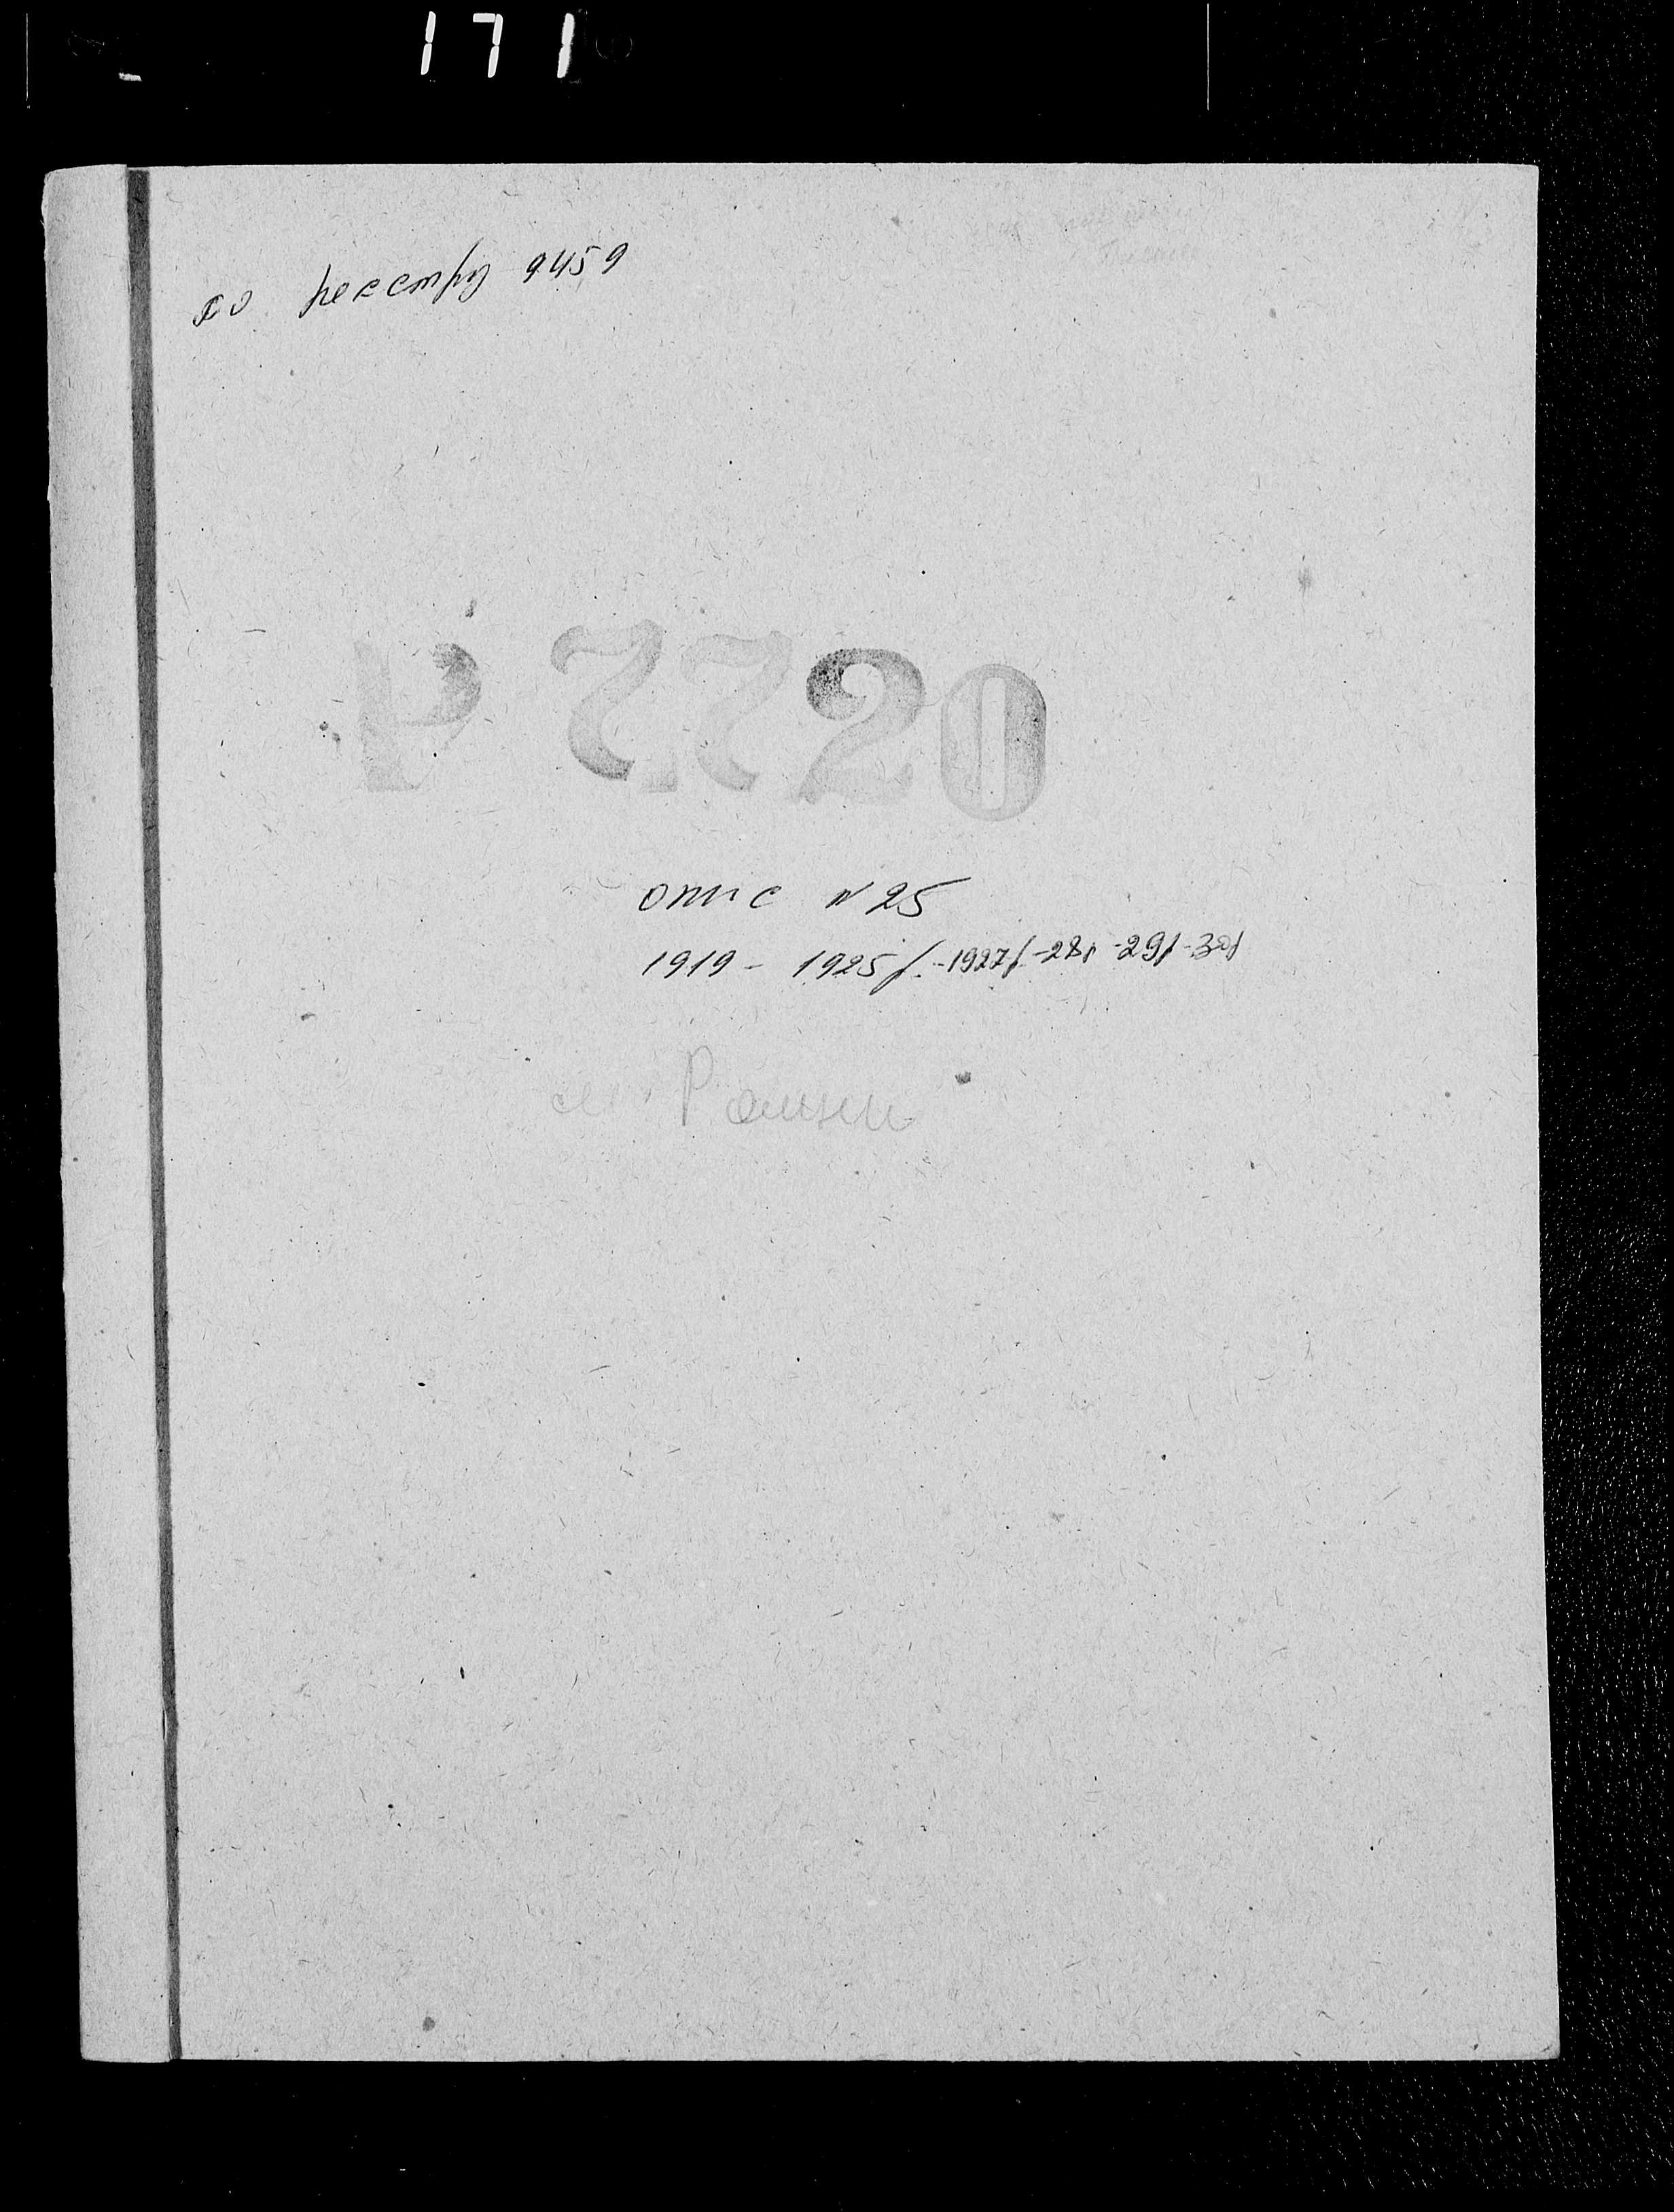 171
по реестру 9459
Р 7720
опис N 25
1919 - 1925 р. - 1927р. - 28р - 29р - 30р